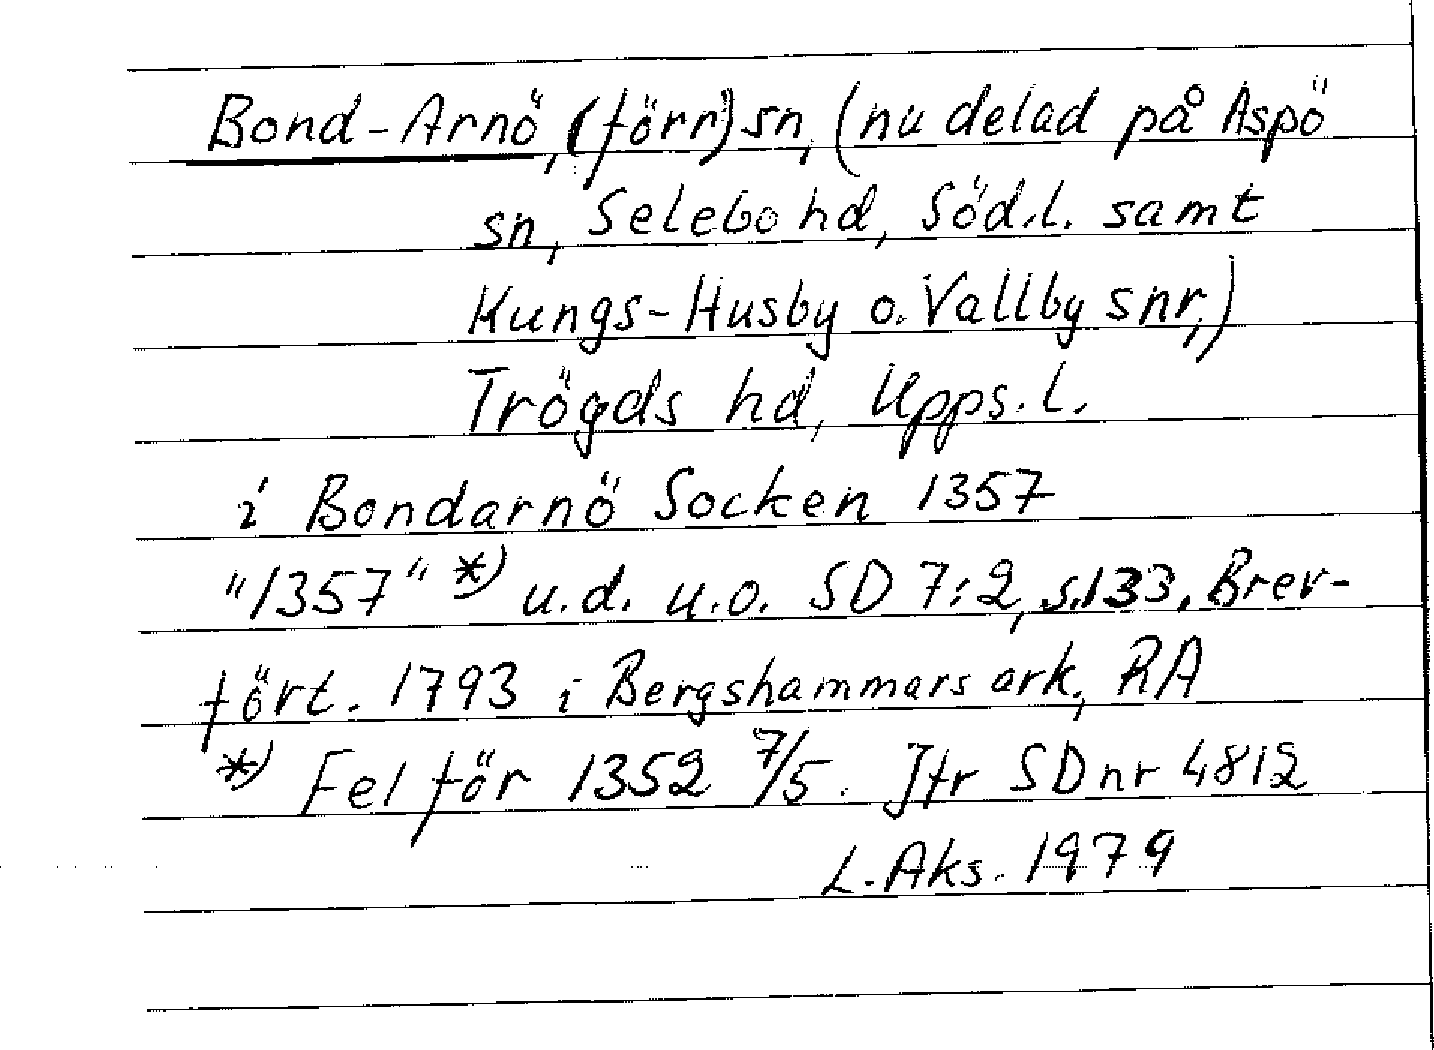 Bond-Arnö, (förr) sn, (nu delad på Aspö
sn, Selebo hd, Söd.l. samt
Kungs-Husby o. Vallby snr,)
Trögds hd, Upps.l.
i Bondarnö Socken 1357
"1357" *) u.d. u.o. SD 7:2, s.133. Brev-
fört. 1793 i Bergshammars ark, RA
*) Fel för 1352 7/5. Jfr SD nr 4812
L.Aks. 1979